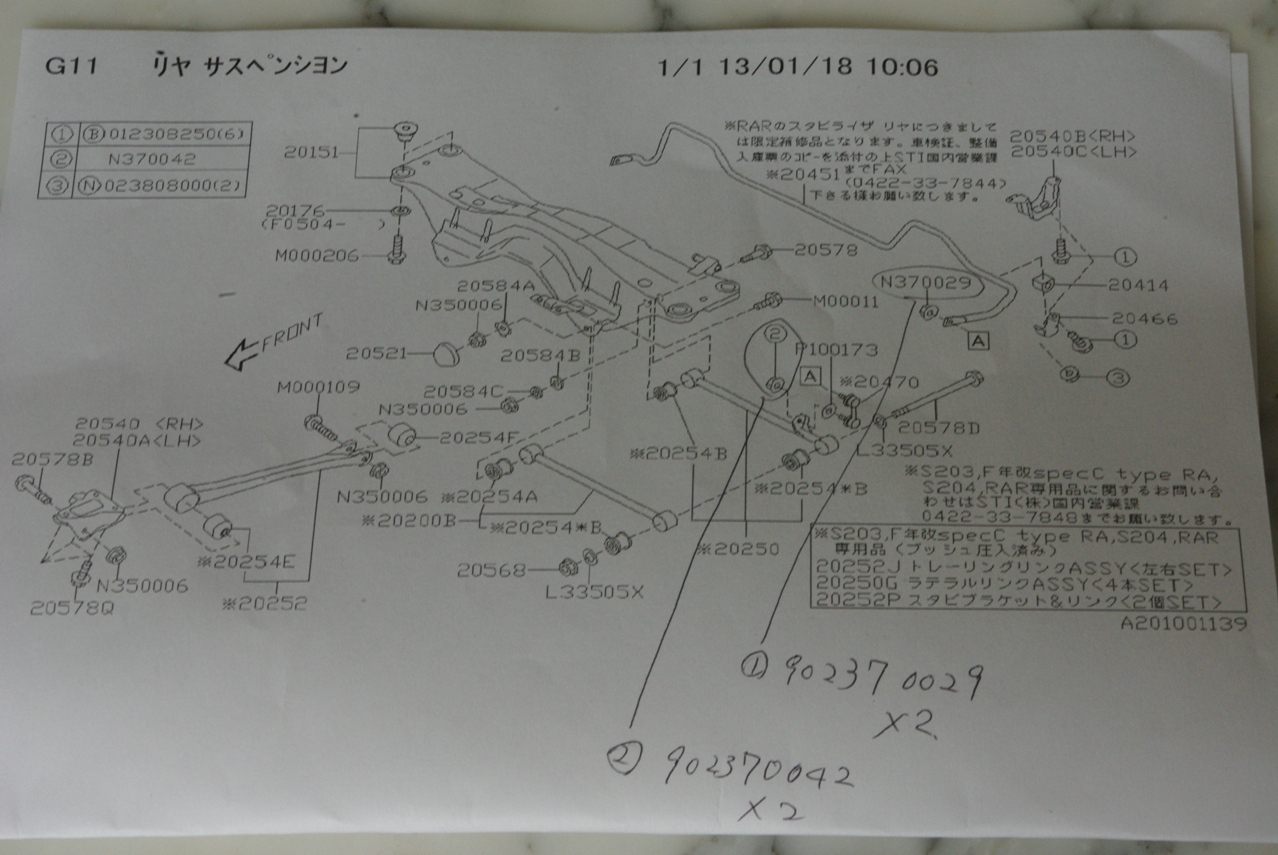 G11 リヤ サスペンシヨン
1/1 13/01/18 10:06
① Ⓑ012308250(6)
② N370042
③ Ⓝ023808000(2)
20151
20176
(F0504- )
M000206
※RARのスタビライザ リヤにつきまして
は限定補修品となります。車検証、整備
入庫票のコピーを添付の上STI国内営業課
※20451までFAX
(0422-33-7844)
下さる様お願い致します。
20540B<RH>
20540C<LH>
20578
①
N370029
20414
20584A
N350006
M00011
20466
FRONT
②
A
①
20521
20584B
P100173
A
③
M000109
20584C
N350006
※20470
20540 <RH>
20540A<LH>
20254F
20578D
20578B
※20254B
L33505X
N350006
※20254A
※20254*B
※20200B
※20254*B
※S203,F年改specC type RA,
S204,RAR専用品に関するお問い合
わせはSTI(株)国内営業課
0422-33-7848までお願い致します。
※20250
※20254E
20568
N350006
L33505X
20578Q
※20252
※S203,F年改specC type RA,S204,RAR
専用品（ブッシュ圧入済み）
20252J トレーリングリンクASSY<左右SET>
20250G ラテラルリンクASSY<4本SET>
20252P スタビブラケット&リンク<2個SET>
A201001139
① 902370029
×2
② 902370042
×2